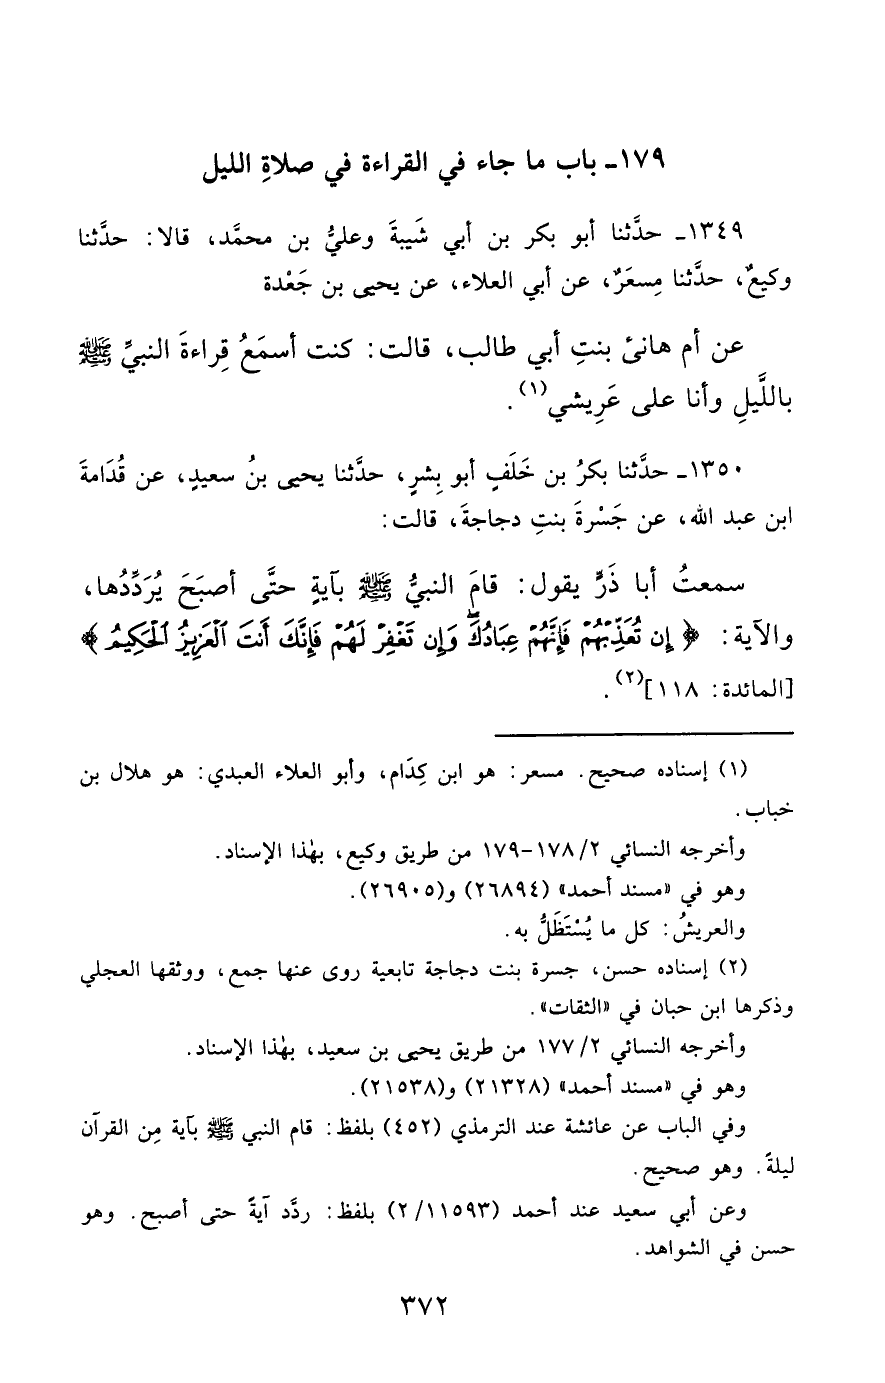 ١٧٩ـ باب ما جاء في القراءة في صلاةِ الليل
١٣٤٩ـ حدَّثنا أبو بكر بن أبي شَيبةَ وعليُّ بن محمَّد، قالا: حدَّثنا
وكيعٌ، حدَّثنا مِسعَرٌ، عن أبي العلاء، عن يحيى بن جَعْدة
عن أم هانئ بنتِ أبي طالب، قالت: كنت أسمَعُ قِراءةَ النبيِّ ﷺ
باللَّيلِ وأنا على عَرِيشي(١).
١٣٥٠ـ حدَّثنا بكرُ بن خَلَفٍ أبو بِشرٍ، حدَّثنا يحيى بنُ سعيدٍ، عن قُدَامةَ
ابن عبد الله، عن جَسْرةَ بنتِ دجاجةَ، قالت:
سمعتُ أبا ذَرٍّ يقول: قامَ النبيُّ ﷺ بآيةٍ حتَّى أصبَحَ يُرَدِّدُها،
والآية: ﴿ إِن تُعَذِّبْهُمْ فَإِنَّهُمْ عِبَادُكَ ۖ وَإِن تَغْفِرْ لَهُمْ فَإِنَّكَ أَنتَ ٱلْعَزِيزُ ٱلْحَكِيمُ ﴾
[المائدة: ١١٨](٢).
(١) إسناده صحيح. مسعر: هو ابن كِدَام، وأبو العلاء العبدي: هو هلال بن
خباب.
وأخرجه النسائي ٢/ ١٧٨-١٧٩ من طريق وكيع، بهٰذا الإسناد.
وهو في «مسند أحمد» (٢٦٨٩٤) و(٢٦٩٠٥).
والعريشُ: كل ما يُسْتَظَلُّ به.
(٢) إسناده حسن، جسرة بنت دجاجة تابعية روى عنها جمع، ووثقها العجلي
وذكرها ابن حبان في «الثقات».
وأخرجه النسائي ٢/ ١٧٧ من طريق يحيى بن سعيد، بهٰذا الإسناد.
وهو في «مسند أحمد» (٢١٣٢٨) و(٢١٥٣٨).
وفي الباب عن عائشة عند الترمذي (٤٥٢) بلفظ: قام النبي ﷺ بآية مِن القرآن
ليلةً. وهو صحيح.
وعن أبي سعيد عند أحمد (١١٥٩٣/ ٢) بلفظ: ردَّد آيةً حتى أصبح. وهو
حسن في الشواهد.
٣٧٢